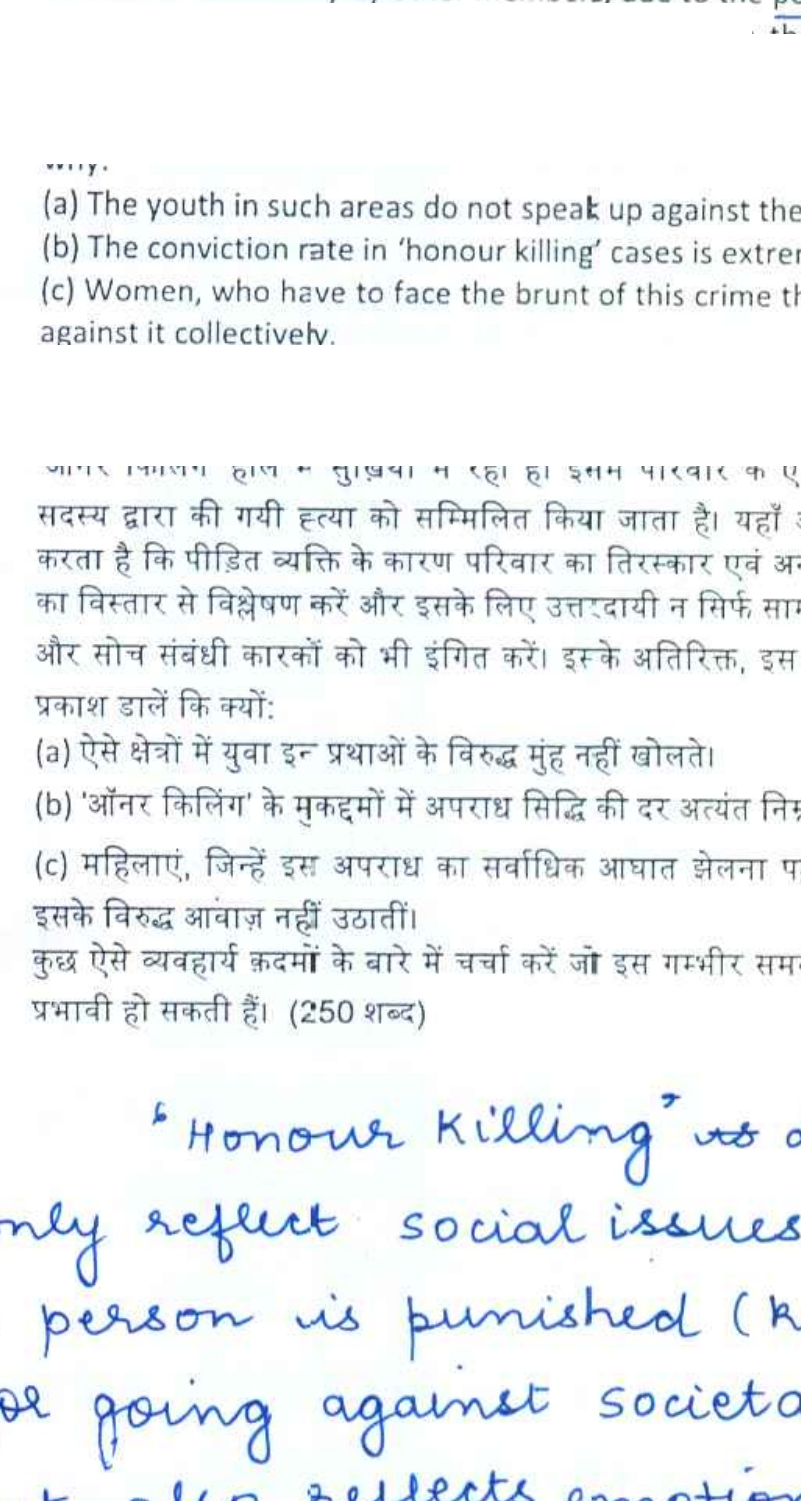 (a) The youth in such areas do not speak up against the
(b) The conviction rate in 'honour killing' cases is
(c) Women, who have to face the brunt of this crime
against it collectively.
सदस्य द्वारा की गयी ह्त्या को सम्मिलित किया जाता है। यहाँ
करता है कि पीड़ित व्यक्ति के कारण परिवार का तिरस्कार एवं
का विस्तार से विश्लेषण करें और इसके लिए उत्तरदायी न सिर्फ
और सोच संबंधी कारकों को भी इंगित करें। इस्के अतिरिक्त, इस
प्रकाश डालें कि क्यों:
(a) ऐसे क्षेत्रों में युवा इन प्रथाओं के विरुद्ध मुंह नहीं खोलते।
(b) 'ऑनर किलिंग' के मुकद्दमों में अपराध सिद्धि की दर अत्यंत
(c) महिलाएं, जिन्हें इस अपराध का सर्वाधिक आघात झेलना
इसके विरुद्ध आवाज़ नहीं उठातीं।
कुछ ऐसे व्यवहार्य क़दमों के बारे में चर्चा करें जो इस गम्भीर
प्रभावी हो सकती हैं। (250 शब्द)
'Honour Killing'
reflect social issues
person is punished (
going against
reflects